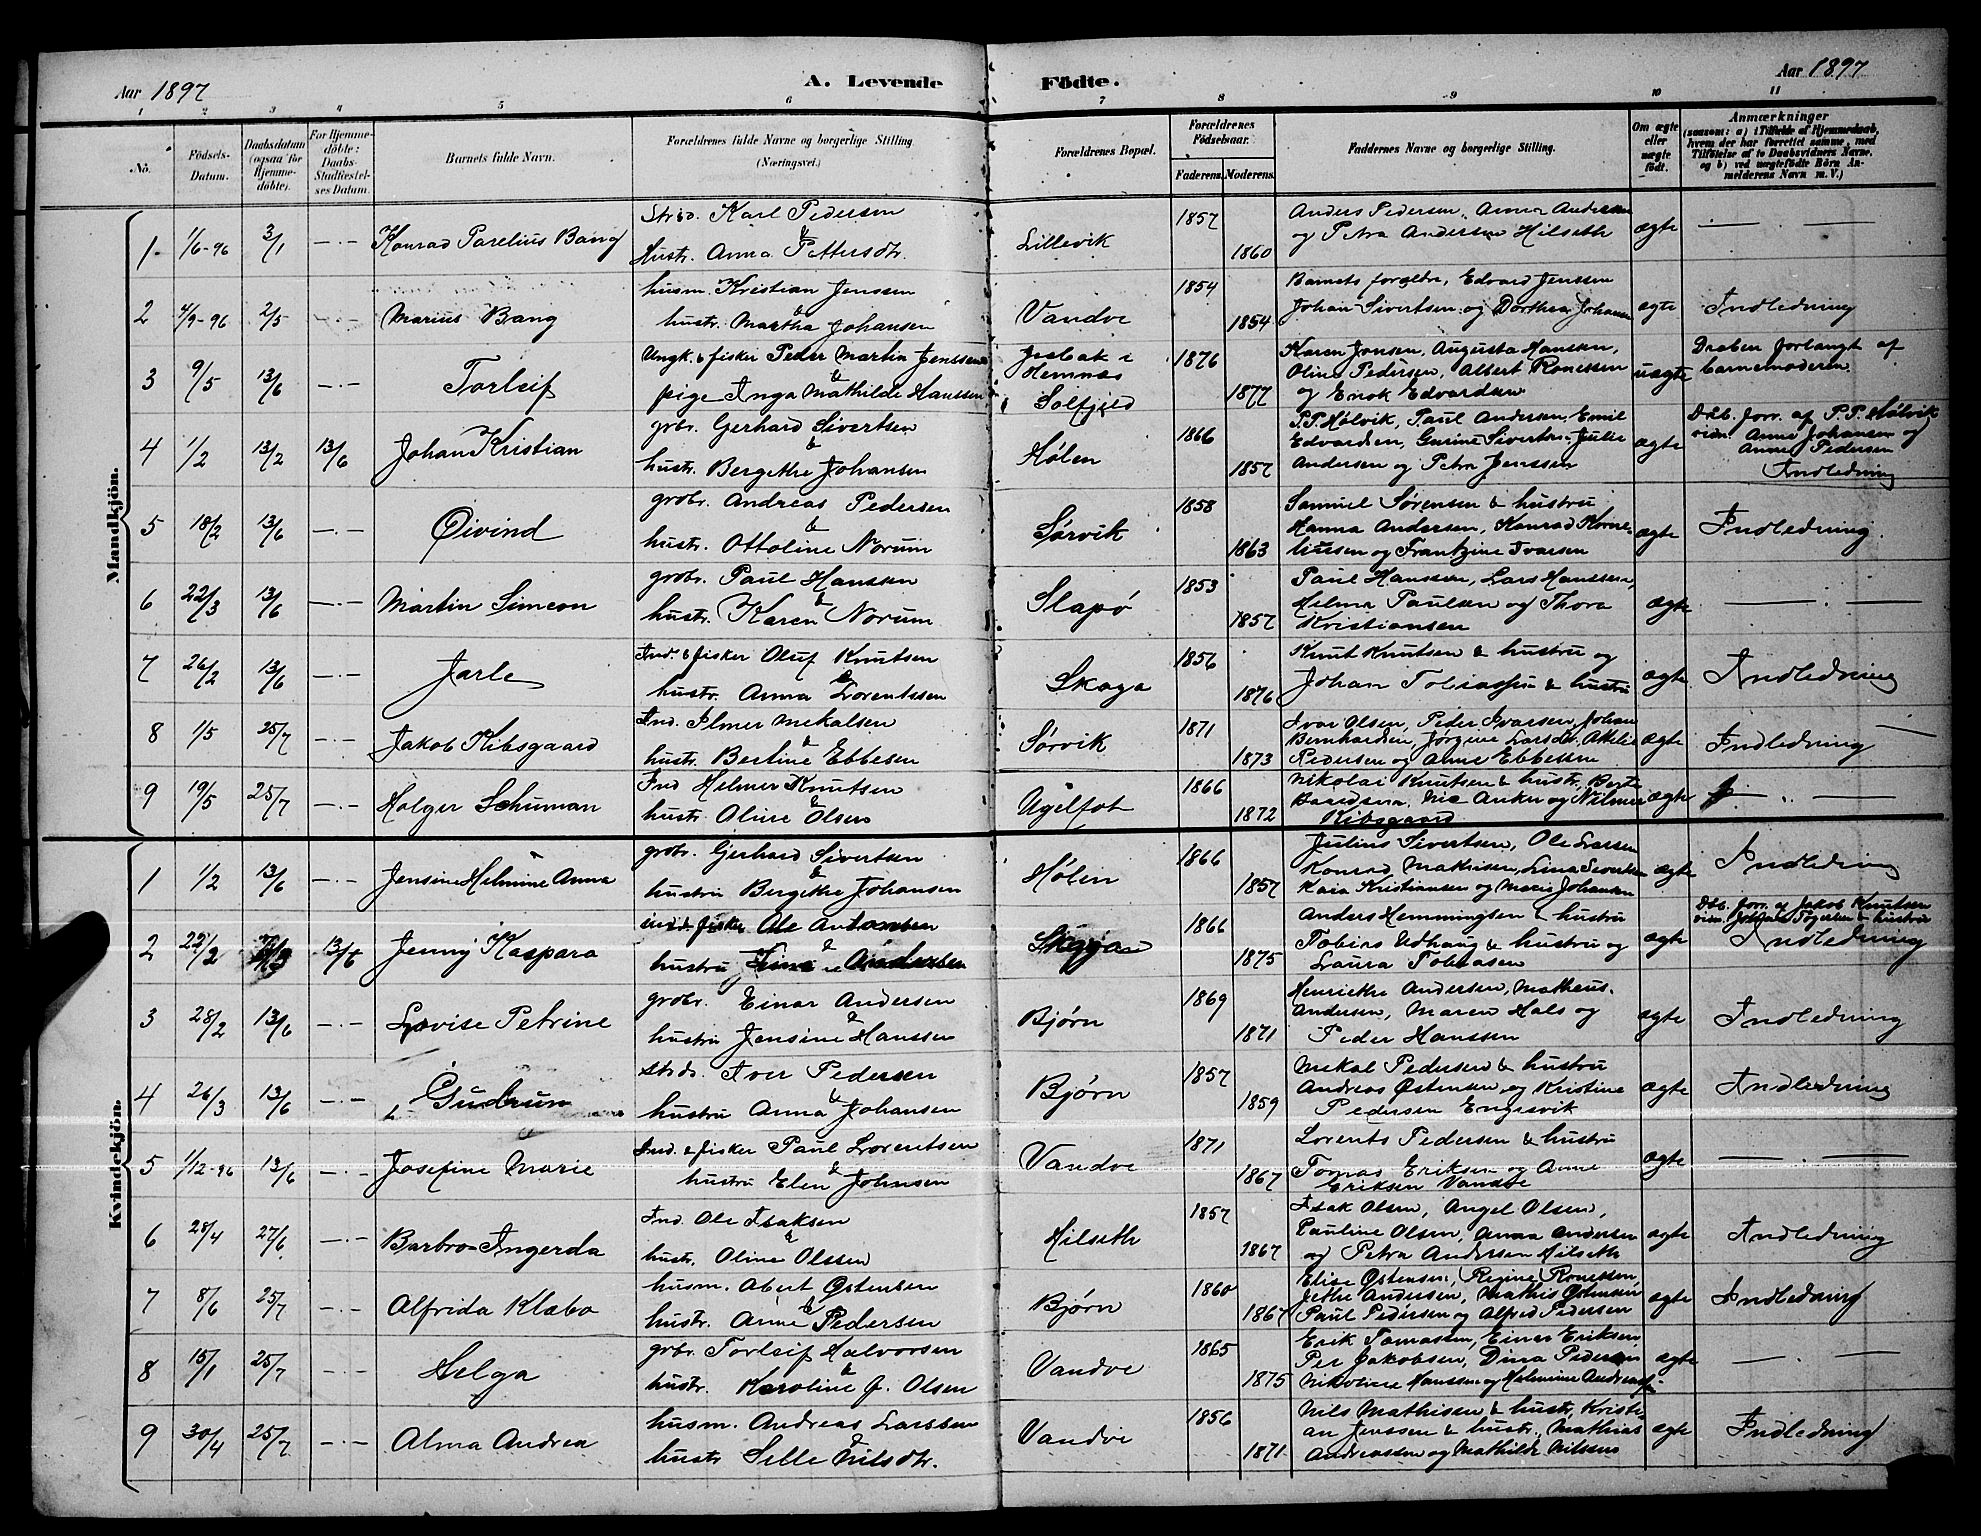 Aar 1897 A. Levende Födte. Aar 1897
1 2 3 4 5 6 7 8 9 10 11
No. Födsels-Datum. Daabsdatum (ogsaa for Hjemmedöbte). For Hjemmedöbte: Daabs-Stadfæstelses Datum. Barnets fulde Navn. Forældrenes fulde Navne og borgerlige Stilling (Næringsvei.) Forældrenes Bopæl. Forældrenes Födselsaar. Faderens. Moderens. Faddernes Navne og borgerlige Stilling. Om ægte eller uægte födt. Anmærkninger (saasom: a) i Tilfælde af Hjemmedaab, hvem der har forrettet samme, med Tilföielse af to Daabsvidners Navne, og b) ved uægtefödte Börn Anmelderens Navn m. V.)
Mandkjön.
Strbd. Karl Pedersen 1857 Anders Pedersen, Anna Andersen
1. 1/6-96 3/1 —·— Konrad Parelius Bang & Lillevik og Petra Andersen Hilseth ægte — · —
Hustr. Anna Pettersdtr. 1860
husm. Kristian Jenssen 1854 Barnets forældre, Edvard Jenssen
2 4/9-96 2/5 —·— Marius Bang & Vandve Johan Sivertsen og Dorthea Johansen ægte Indledning
hustr. Martha Johansen 1854
Ungk. & fisker Peder Martin Jenssen 1876 Karen Jonsen, Augusta Hanssen, Daaben forlangt af
3 9/5 13/6 —·— Torleif & Hemnæs Oline Pedersen, Albert Ronessen uægte barnemoderen
pige Inga Mathilde Hanssen Solfjeld 1877 og Enok Edvardsen
grbr. Gerhard Sivertsen 1866 P.P. Hølvik, Paul Andersen, Emil Ddb. forr. af P.P. Hølvik
4 1/2 13/2 13/6 Johan Kristian & Hølen Edvardsen, Gurine Sivertsen, Julie ægte vidn. Anne Johansen og
hustr. Bergithe Johansen 1857 Andersen og Petra Jenssen Anne Pedersen
Indledning
grbr. Andreas Pedersen 1858 Samuel Sørensen & hustru
5 18/2 13/6 —·— Øivind & Sørvik Hanna Andersen, Konrad Korne- ægte Indledning.
hustr. Ottoline Norum 1863 liussen og Frantzine Ivarsen
grbr. Paul Hanssen 1853 Paul Hanssen, Lars Hanssen,
6 22/3 13/6 —·— Martin Simeon & Slapø Helma Paulsen og Thora ægte — · —
hustr. Karen Norum 1857 Kristiansen
Ind. & fisker Oluf Knutsen 1856 Knut Knutsen & hustru og
7 26/2 13/6 —·— Jarle & Skaga Johan Tobiassen & hustru ægte Indledning
hustr. Anna Lorentssen 1876
Ind. Ilmer Mekalsen 1871 Ivar Olsen, Peder Ivarsen, Johan
8 1/5 25/7 —·— Jakob Kibsgaard & Sørvik Bernhardsen, Jørgine Larsdtr. Attelie ægte Indledning
hustr. Bertine Ebbesen 1873 Pedersen og Anne Ebbesen
Ind Helmer Knutsen 1866 Nikolai Knutsen & hustr., Berte
9 19/5 25/7 Holger Schuman & Ugelfot Baardsen, Nic Anker og Nilmer ægte — · —
hustr. Oline Olsen 1872 Kibsgaard
Kvindekjön.
grbr. Gerhard Sivertsen 1866 Julius Sivertsen, Ole Larsen
1 1/2 13/6 —·— Jensine Helmine Anna & Hølen Konrad Mathisen, Lina Sivertsen ægte Indledning
hustru Bergithe Johansen 1857 Kaia Kristiansen og Marie Johansen
ind. & fisker Ole Antonsen 1866 Anders Hemmingsen & hustru Ddb. forr. af Jakob Knutsen
2 22/2 13/6 Jenny Kaspara & Skaga Tobias Udhaug & hustru og ægte vidn. & hustru
hustru Andersen 1875 Laura Tobiasen Indledning
grbr. Einar Andersen 1869 Henriethe Andersen, Matheus
3 28/2 13/6 —·— Lovise Petrine & Bjørn Andersen, Maren Hals og ægte Indledning
hustru Jensine Hanssen 1871 Peder Hanssen
strdr. Iver Pedersen 1857 Mekal Pedersen & hustru
4 26/3 13/6 —·— Gudrun & Bjørn Andreas Østensen og Kristine ægte Indledning
hustru Anna Johansen 1859 Pedersen Engesvik
Ind. & fisker Paul Lorentsen 1871 Lorents Pedersen & hustru
5 1/12-96 13/6 —·— Josefine Marie & Vandve Tomas Eriksen og Anne ægte — · —
hustru Elen Johnsen 1867 Eriksen Vandve
Ind. Ole Isaksen 1857 Isak Olsen, Angel Olsen,
6 28/4 27/6 —·— Barbro Ingerda & Hilseth Pauline Olsen, Anna Andersen ægte Indledning
hustr. Oline Olssen 1867 og Petra Andersen Hilseth
husm. Abert Østensen 1860 Elise Østensen, Regine Ronessen,
7 8/6 25/7 —·— Alfrida Klæbo & Bjørn Jethe Andersen, Mathis Østensen ægte Indledning
hustr. Anne Pedersen 1867 Paul Pedersen og Alfred Pedersen
grbr. Torleif Halvorsen 1865 Erik Tomassen, Einar Eriksen
8 15/1 25/7 —·— Helga & Vandve Per Jakobsen, Dina Pedersen ægte — · —
hustr. Karoline J. Olsen 1875 Nikoline Hanssen og Helmine Andreassen
husm. Andreas Larssen 1856 Nils Mathissen & hustr, Kristi-
9 30/4 25/7 —·— Alma Andrea & Vandve an Jenssen & hustr., Mathias ægte Indledning
hustr Sille Nilsdtr. 1871 Andreassen og Mathilde Nilssen